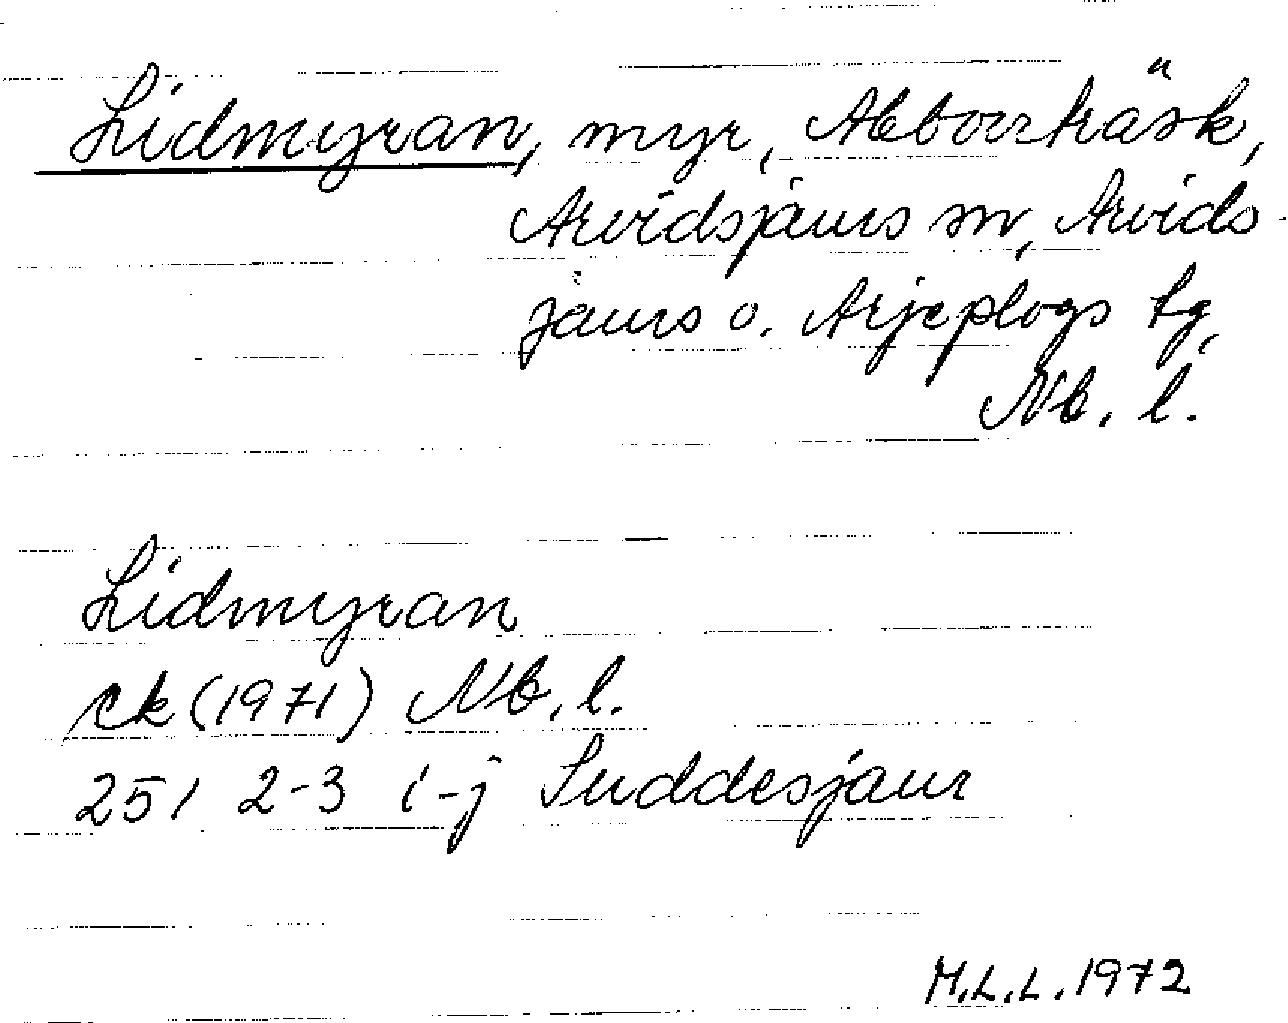 Lidmyran, myr, Abborrträsk,
Arvidsjaurs sn, Arvids-
jaurs o. Arjeplogs tg,
Nb. l.
Lidmyran
rek (1971) Nb. l.
25 I 2-3 i-j Suddesjaur
M.L.L. 1972